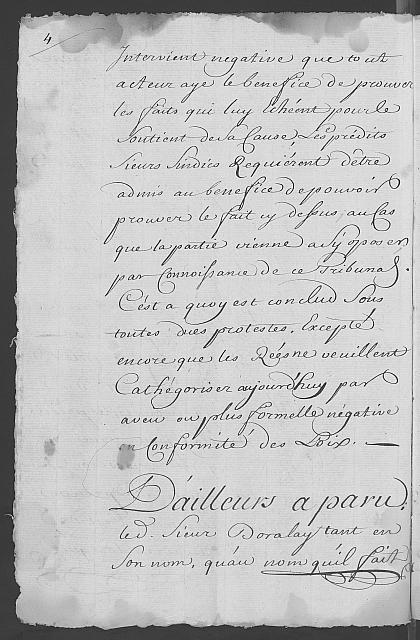 4
Intervient negative que tout
acteur aye le benefice de prouver
les faits qui luy échéent pour le
Soutient de sa Cause, Les prédits
Sieurs Sindics Requiérent d'être
admis au benefice de pouvoir
prouver le fait cy dessus au Cas
que la partie vienne a s'y oposer
par Connoissance de ce Tribunal.
C'est a quoy est conclud Sous
toutes dues protestes. Excepté
encore que les Régsne veuillent
Cathégoriser aujourd'huy par
aveu ou plus formelle négative
en Conformité des Loix. —
D'ailleurs a paru
led. Sieur Doralay tant en
Son nom, qu'au nom qu'il fait